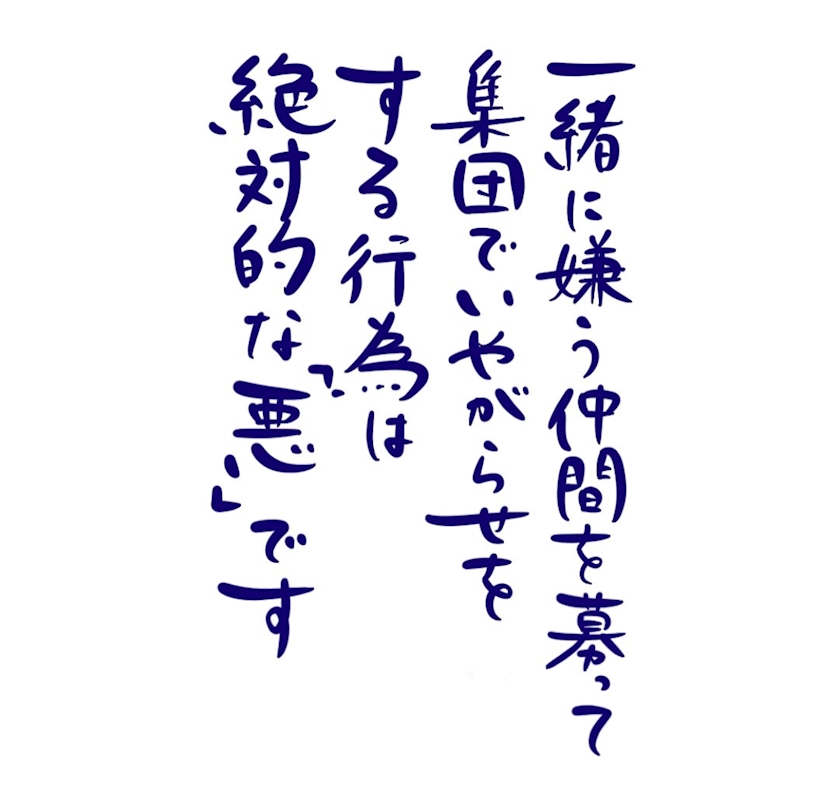 一緒に嫌う仲間を募って
集団でいやがらせを
する行為は
絶対的な「悪」です